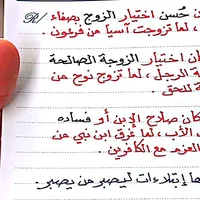 حُسن اختيار الزوج بصفاء
، لما تزوجت آسيا من فرعون .
اختيار الزوجة الصالحة
الرجل ، لما تزوج نوح من
للحق .
كان صلاح الإبن أو فساده
الأب ، لما غرق ابن نبي من
العزم مع الكافرين .
إبتلاءات ليصبر من يصبر .